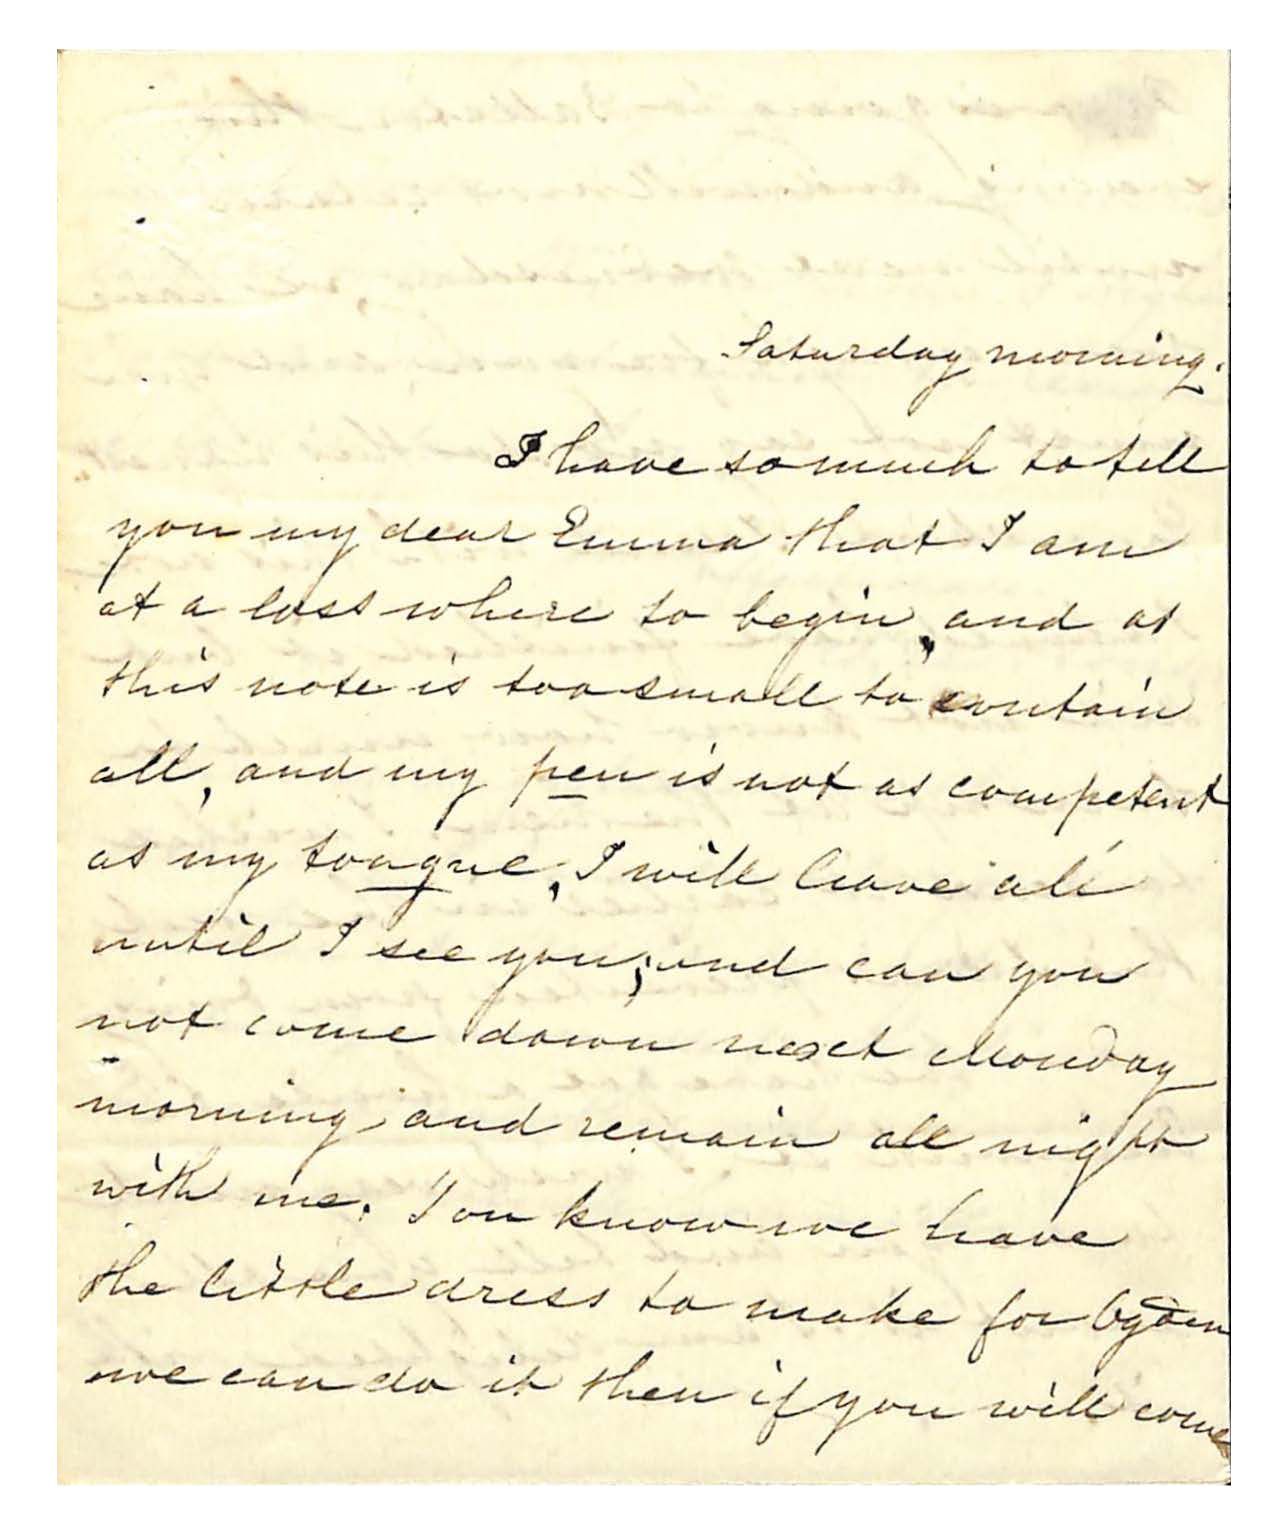 Saturday morning.
I have so much to tell
you my dear Emma that I am
at a loss where to begin, and as
this note is too small to contain
all, and my pen is not as competent
as my tongue, I will leave all
until I see you; and can you
not come down next Monday
morning, and remain all night
with me. You know we have
the little dress to make for Ogden
we can do it then if you will come